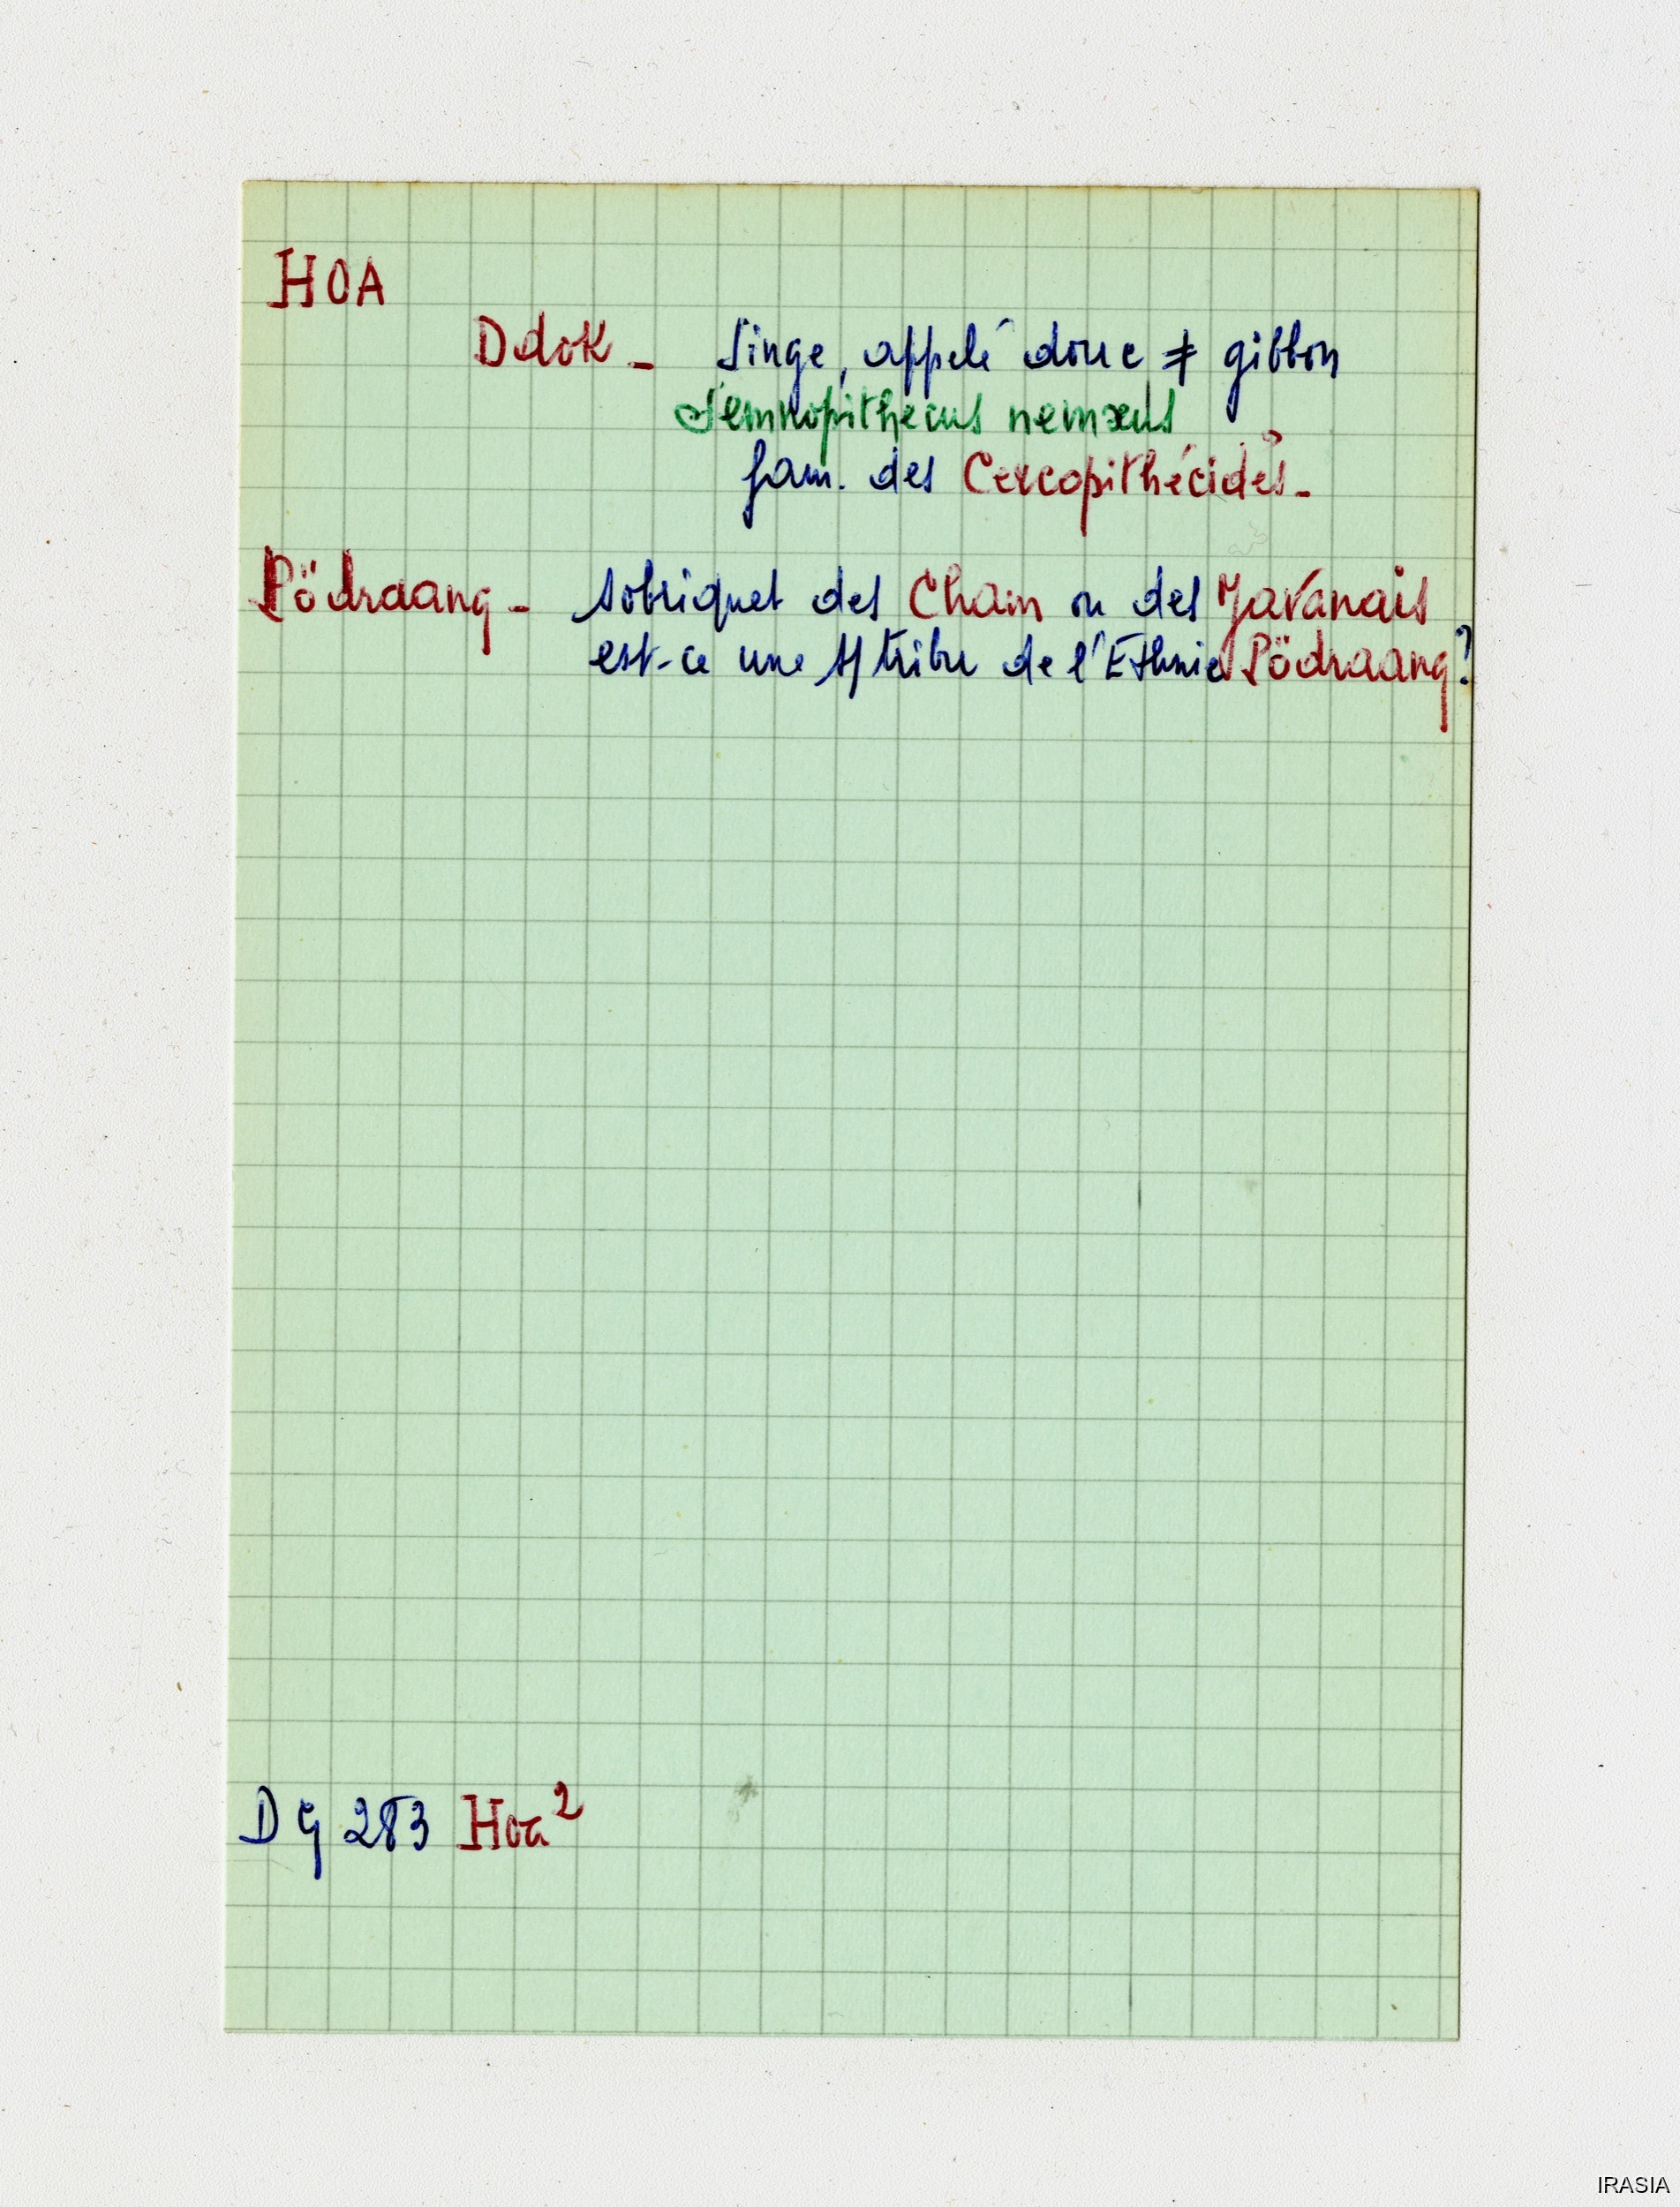 HOA
Ddok - Singe, appelé douc ≠ gibbon
Semnopithecus nemæus
fam. des Cercopithécidés -
Pödraang - sobriquet des Cham ou des Javanais
est-ce une s/tribu de l'Ethnie Pödraang?
DG 283 Hoa²
IRASIA